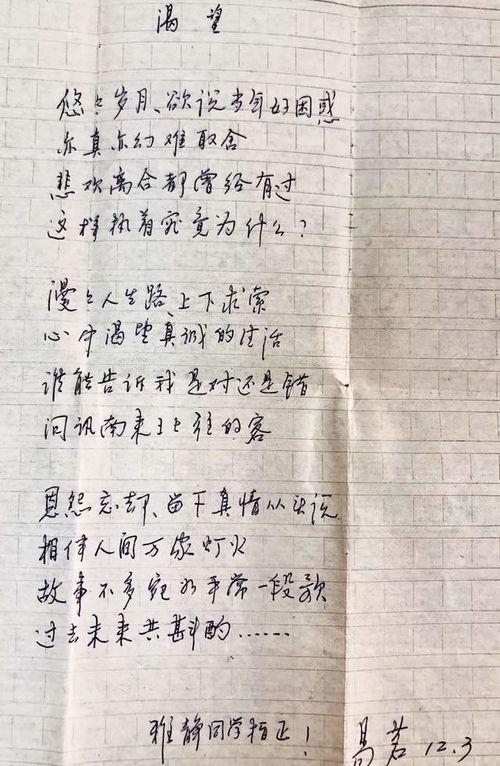 渴望
悠々岁月、欲说当年好困惑
亦真亦幻难取舍
悲欢离合都曾经有过
这样执着究竟为什么?
漫々人生路、上下求索
心中渴望真诚的生活
谁能告诉我是对还是错
问讯南来北往的客
恩怨忘却、留下真情从头说
相伴人间万家灯火
故事不多宛如平常一段歌
过去未来共斟酌……
雅静同学指正!
易若 12.3